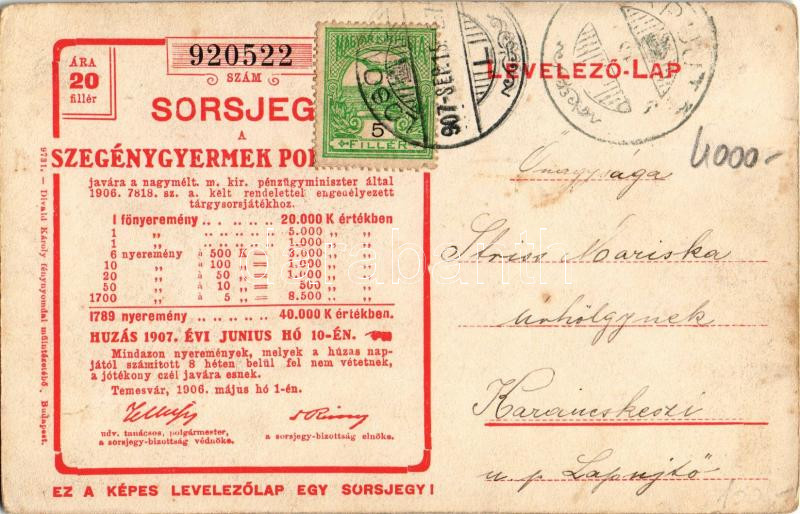 ÁRA
20
fillér
920522
SZÁM
SORSJEG
A
SZEGÉNYGYERMEK
javára a nagymélt. m. kir. pénzügyminiszter által
1906. 7818. sz. a. kelt rendelettel engedélyezett
tárgysorsjátékhoz.
I főnyeremény .. .. .. .. .. 20.000 K értékben
1 „ .. .. .. .. .. 5.000 „ „
1 „ .. .. .. .. .. 1.000 „ „
6 nyeremény à 500 K = 3.000 „ „
10 „ à 100 „ = 1.000 „ „
20 „ à 50 „ = 1.000 „ „
50 „ à 10 „ = 500 „ „
1700 „ à 5 „ = 8.500 „ „
1789 nyeremény .. .. .. .. 40.000 K értékben.
HUZÁS 1907. ÉVI JUNIUS HÓ 10-ÉN.
Mindazon nyeremények, melyek a húzas nap-
jától számított 8 héten belül fel nem vétetnek,
a jótékony czél javára esnek.
Temesvár, 1906. május hó 1-én.
udv. tanácsos, polgármester,
a sorsjegy-bizottság védnöke.
a sorsjegy-bizottság elnöke.
EZ A KÉPES LEVELEZŐLAP EGY SORSJEGY!
9731. — Divald Károly fénynyomdai műintézetéből, Budapest.
MAGYAR KIR. POSTA
5
FILLÉR
907 SEP. 15
LEVELEZŐ-LAP
4000.-
Önagysága
Striss Mariska
urhölgynek
Karancskeszi
u. p. Lapujtő
darabanth